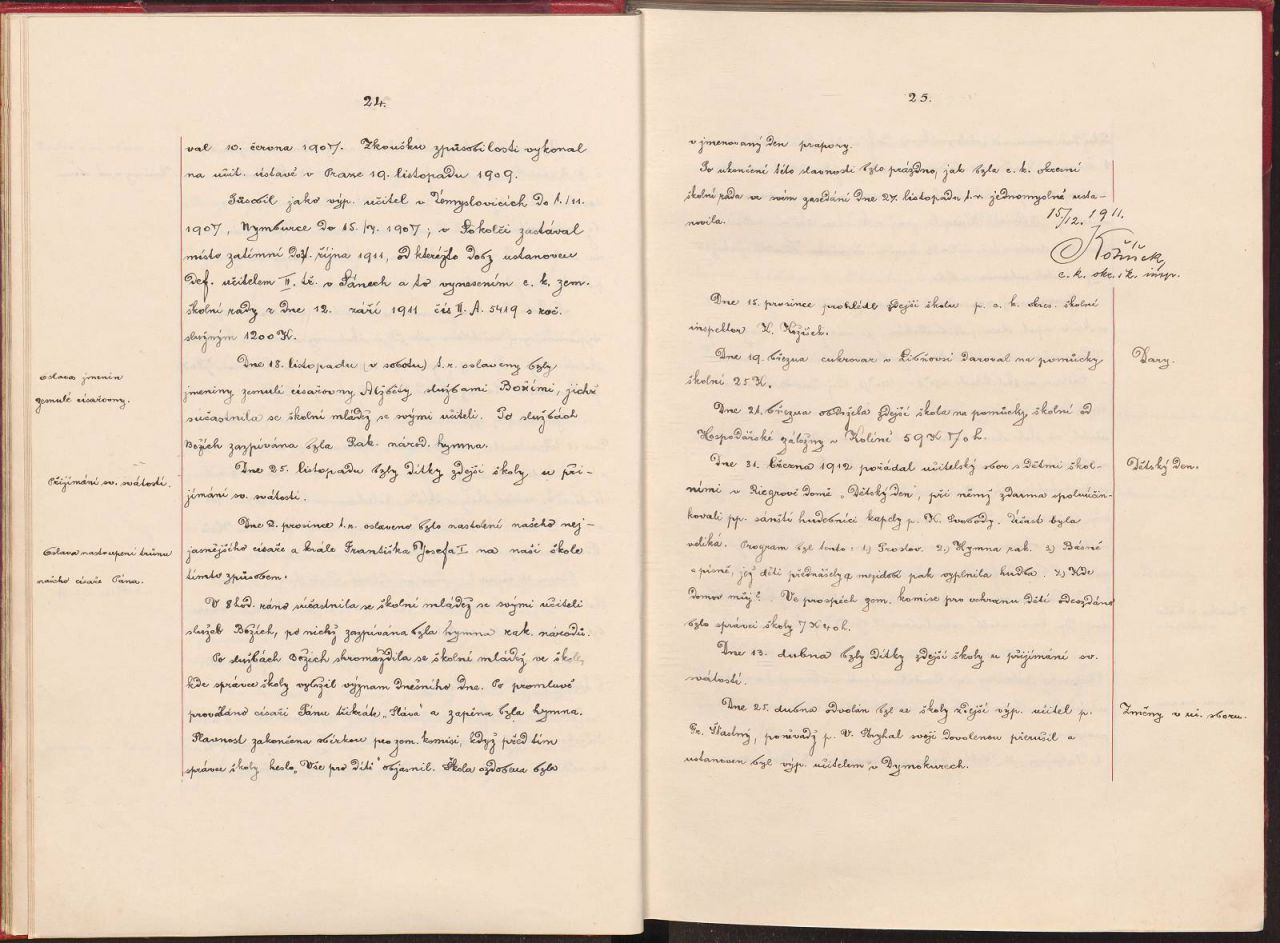 24.
val 10. června 1907. Zkoušku způsobilosti vykonal
na učit. ústavě v Praze 19. listopadu 1909.
Působil jako výp. učitel v Přemyslovicích do 1./11.
1907, Nymburce do 15./ 1907; v Sokolči zastával
místo zatímní do října 1911, od kteréžto doby ustanoven
def. učitelem II. tř. v Pánech a to vynesením c. k. zem.
školní rady z dne 12. září 1911 čís II. A. 5419 s roč.
služným 1200 K.
oslava jmenin
zemulé císařovny.
Dne 18. listopadu (v sobotu) t. r. oslaveny byly
jmeniny zemulé císařovny Alžběty službami Božími, jichž
súčastnila se školní mládež se svými učiteli. Po službách
Božích zazpívána byla Rak. národ. hymna.
Přijímání sv. svátostí.
Dne 25. listopadu byly dítky zdejší školy u při-
jímání sv. svátostí.
Oslava nastoupení trůnu
našeho císaře Pána.
Dne 2. prosince t. r. oslaveno bylo nastolení našeho nej-
jasnějšího císaře a krále Františka Josefa I na naší škole
tímto způsobem:
V 8 hod. ráno súčastnila se školní mládež se svými učiteli
služeb Božích, po nichž zazpívána byla hymna rak. národů.
Po službách Božích shromáždila se školní mládež ve škole,
kde správce školy vylíčil význam dnešního dne. Po promluvě
provoláno císaři Pánu třikráte „Sláva" a zapěna byla hymna.
Slavnost zakončena sbírkou pro zem. komisi, když před tím
správce školy heslo „Vše pro dítě" objasnil. Škola ozdobena byla
25.
v jmenovaný den prapory.
Po ukončení této slavnosti bylo prázdno, jak byla c. k. okresní
školní rada ve svém zasedání dne 27. listopadu t. r. jednomyslně usta-
novila.
15/12. 1911.
Kožíšek,
c. k. okr. šk. insp.
Dne 15. prosince prohlédl zdejší školu p. c. k. okres. školní
inspektor K. Kožíšek.
Dary.
Dne 19. března cukrovar v Libňovsi daroval na pomůcky
školní 25 K.
Dne 21. března obdržela zdejší škola na pomůcky školní od
Hospodářské záložny v Kolíně 59 K 70 h.
Dětský den.
Dne 31. března 1912 pořádal učitelský sbor s dětmi škol-
ními v Riegrově domě „Dětský den", při němž zdarma spoluúčin-
kovali pp. sánští hudebníci kapely p. K. Svobody. Účast byla
veliká. Program byl tento: 1) Proslov. 2.) Hymna rak. 3) Básně
a písně, jež děti přednášely a mezidobí pak vyplnila hudba. 4) Kde
domov můj?. Ve prospěch zem. komise pro ochranu dětí odevzdáno
bylo správcí školy 7 K 40 h.
Dne 13. dubna byly dítky zdejší školy u přijímání sv.
svátostí.
Změny v uč. sboru.
Dne 25. dubna odvolán byl ze školy zdejší výp. učitel p.
Fr. Šťastný, poněvadž p. V. Stryhal svoji dovolenou přerušil a
ustanoven byl výp. učitelem v Dymokurech.